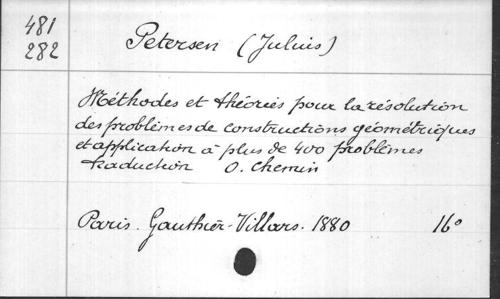 481
282
Petersen (Julius)
Méthodes et théories pour la résolution
des problèmes de constructions géométriques
et application à plus de 400 problèmes
traduction O. Chemin
Paris. Gauthier-Villars. 1880 16°